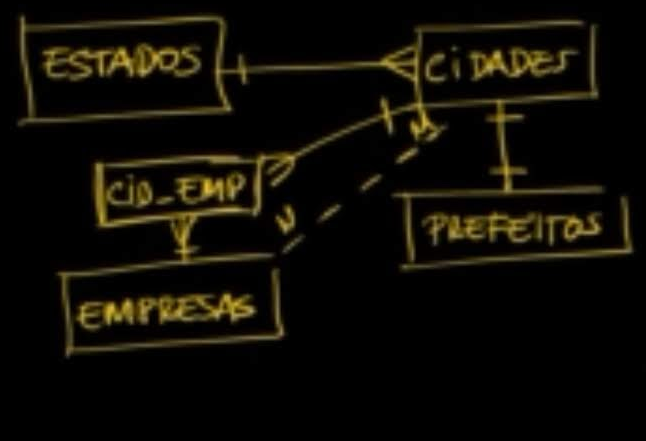 ESTADOS
CIDADES
M
CID_EMP
N
PREFEITOS
EMPRESAS